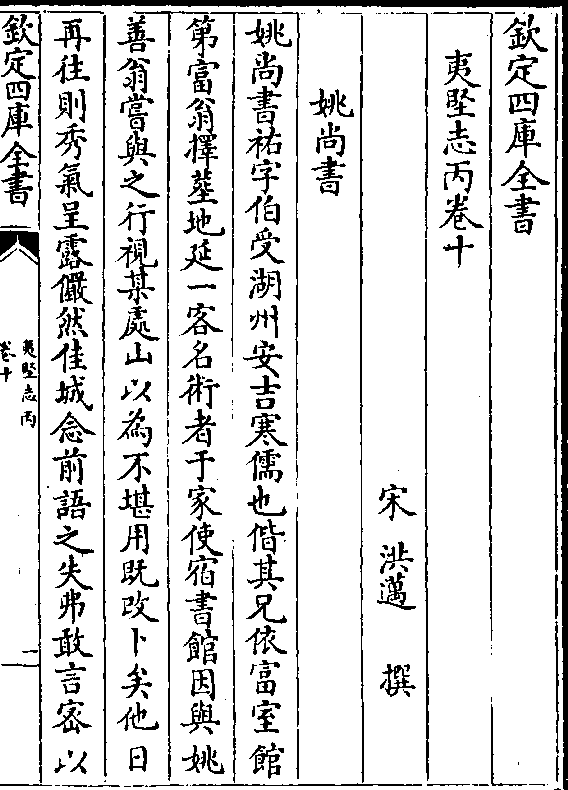 欽定四庫全書
夷堅志丙卷十
宋 洪邁 撰
姚尚書
姚尚書祐字伯受湖州安吉寒儒也偕其兄依富室館
第富翁擇塟地延一客名術者于家使宿書館因與姚
善翁嘗與之行視某處山以為不堪用既改卜矣他日
再往則秀氣呈露儼然佳城念前語之失弗敢言密以
欽定四庫全書
夷堅志丙
卷十
一